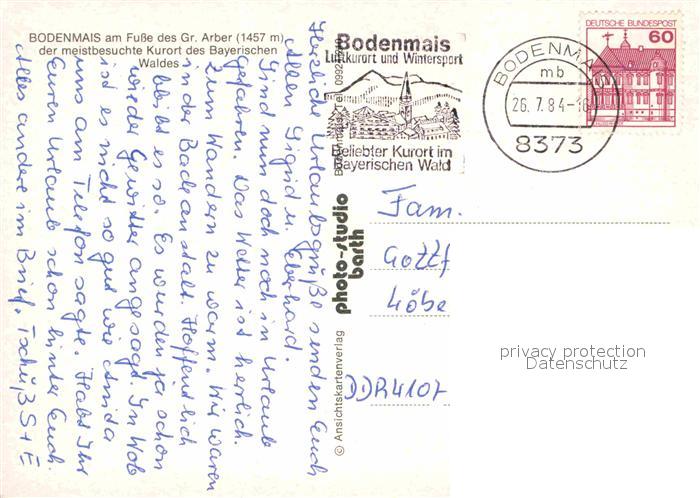 BODENMAIS am Fuße des Gr. Arber (1457 m)
der meistbesuchte Kurort des Bayerischen
Waldes
Herzliche Urlaubsgrüße senden Euch
Allen Sigrid u. Eberhard.
Sind nun doch noch in Urlaub
gefahren. Das Wetter ist herrlich.
Zum Wandern zu warm. Wir waren
in der Badeanstalt. Hoffentlich
bleibt es so. Es wurden ja schon
wieder Gewitter angesagt. In Wob
ist es nicht so gut wie
uns am Telefon sagte. Habt Ihr
Euren Urlaub schon hinter Euch.
Alles andere im Brief. Tschüß S+E
© Ansichtskartenverlag
photo-studio
barth
Bodenmais
Luftkurort und Wintersport
Beliebter Kurort im
Bayerischen Wald
BODENMAIS
mb
26.7.84-16
8373
DEUTSCHE BUNDESPOST
60
Fam.
Gottf
Löbe
DDR 4107
privacy protection
Datenschutz